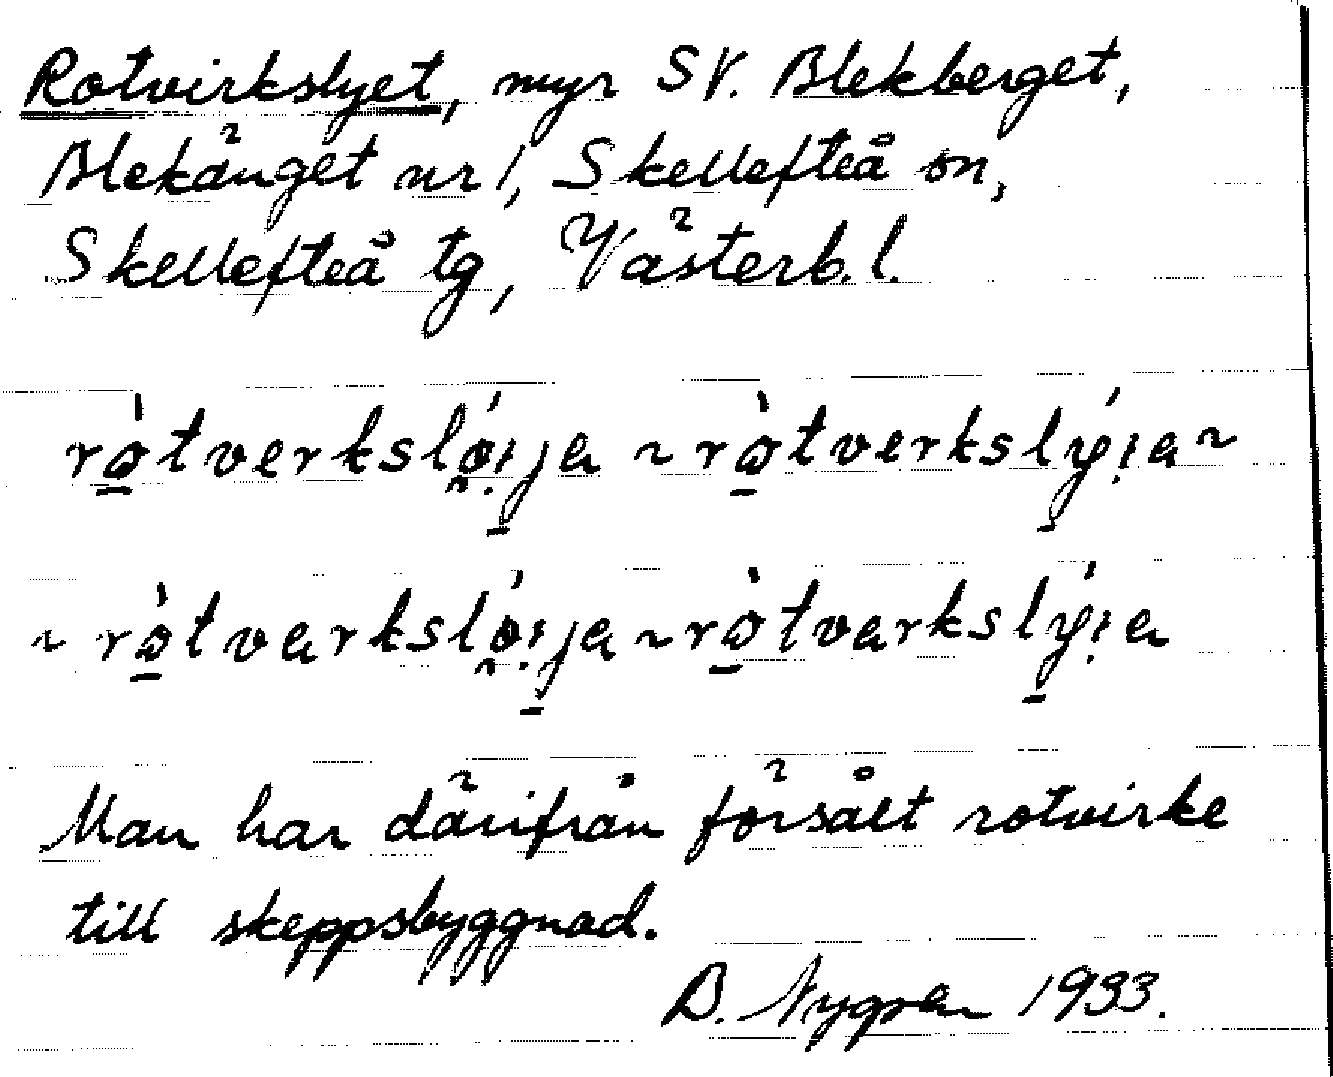 Rotvirkslyet, myr SV. Blekberget,
Blekänget nr 1, Skellefteå sn,
Skellefteå tg, Västerb. l.
Man har därifrån försålt rotvirke
till skeppsbyggnad.
B. Nygren 1933.